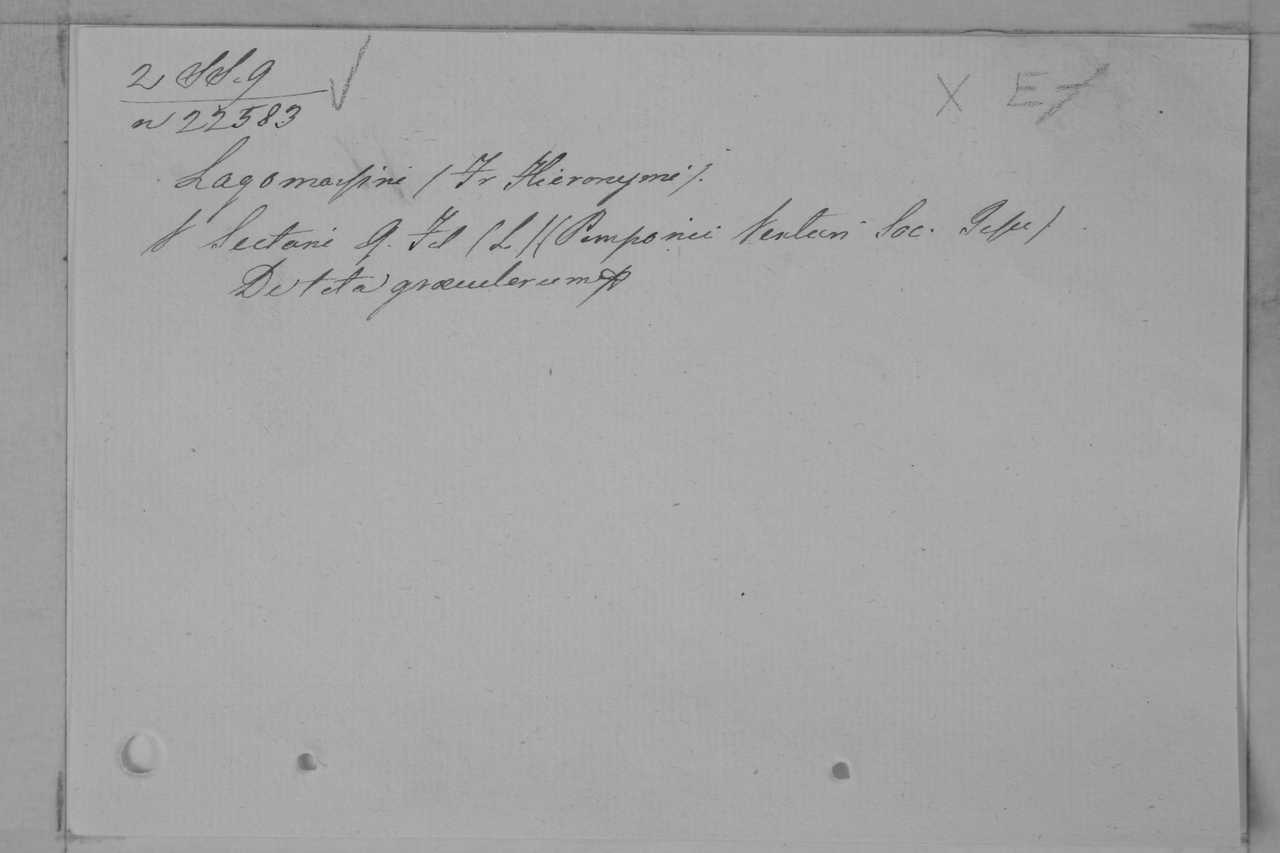 2 SS. 9
n 22583
X E
Lagomarsini (Fr Hieronymi).
V Sectani Q. Fil (L) (Pomponii Venturi Soc. Jesu)
De tota græculorum